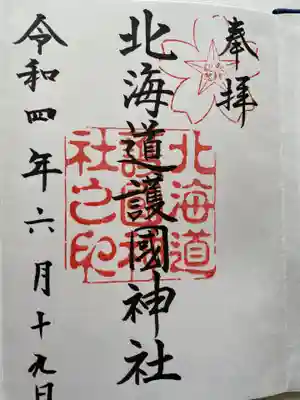 奉拝
北海道護國神社
北海道
護國神
社之印
令和四年六月十九日